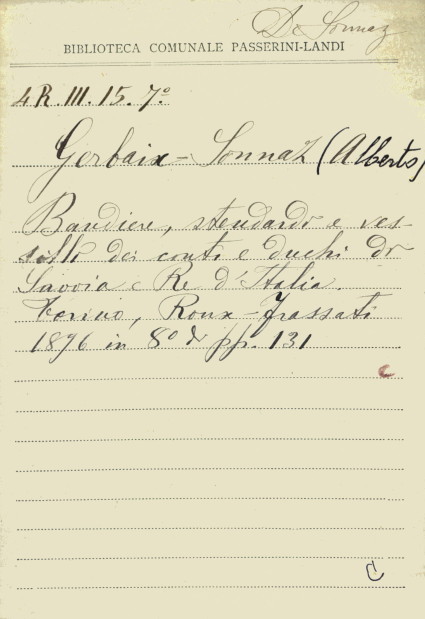 De Sonnaz
BIBLIOTECA COMUNALE PASSERINI-LANDI
4R. III. 15. 7º
Gerbaix-Sonnaz (Alberto)
Bandiere, stendardo e ves-
sillo dei conti e duchi di
Savoia e Re d'Italia.
Torino, Roux-Frassati
1896 in 8º di pp. 131
C
C